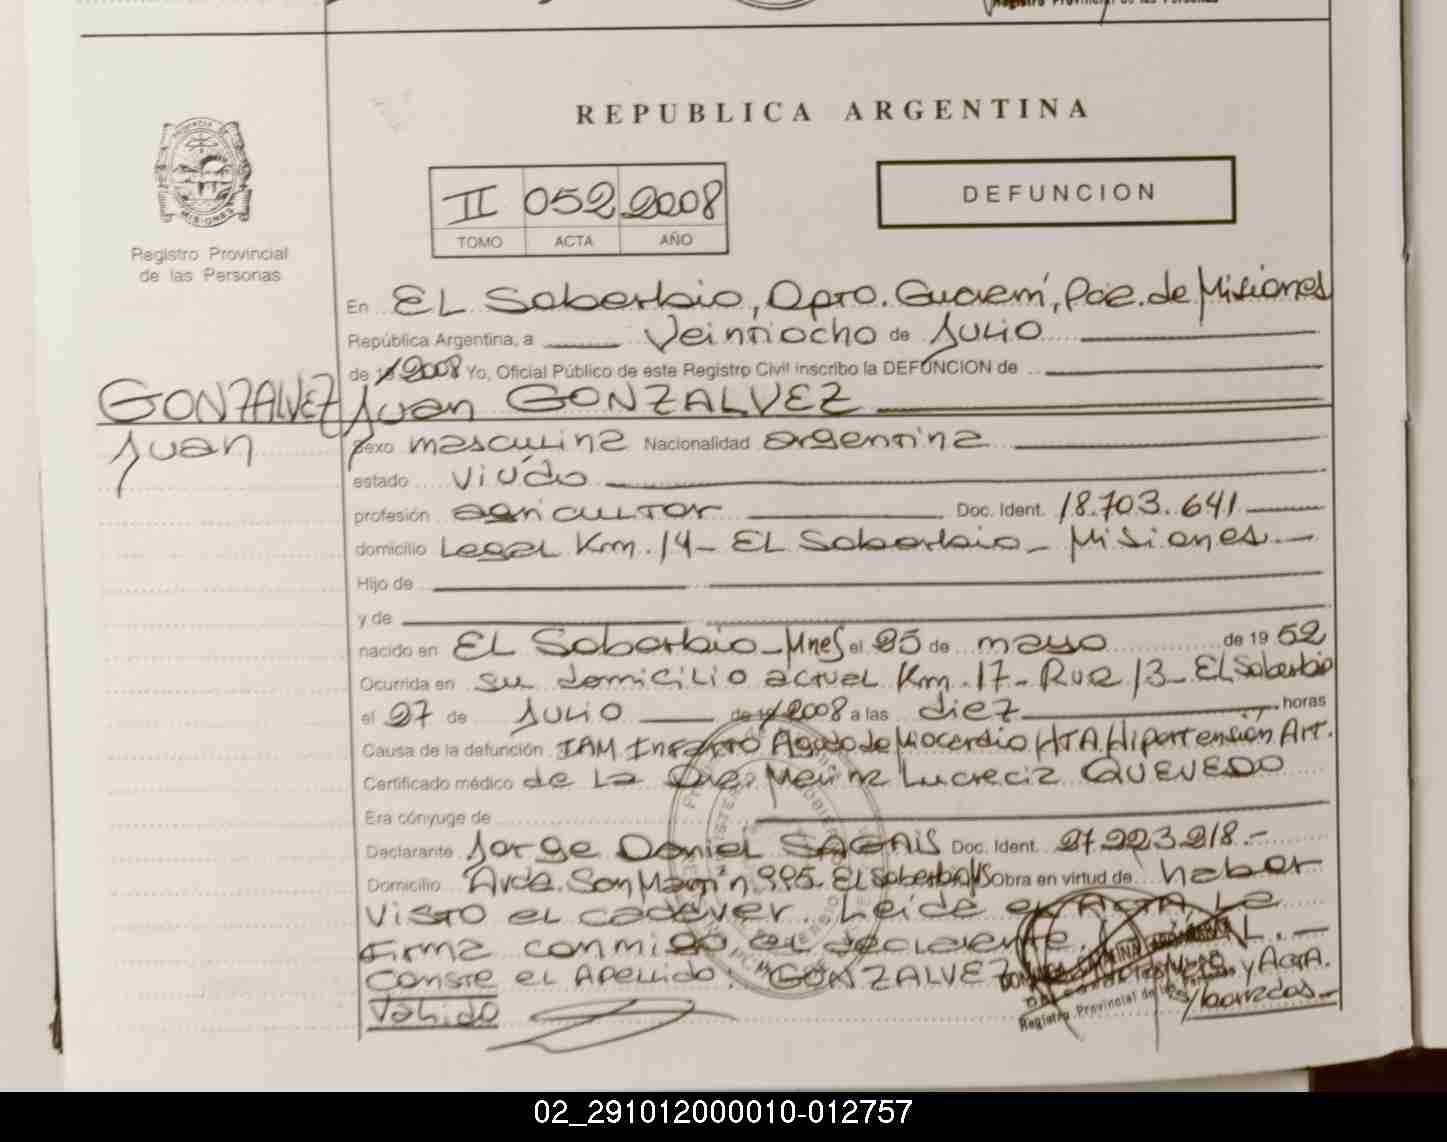 REPUBLICA ARGENTINA
II 052 2008
TOMO ACTA AÑO
DEFUNCION
Registro Provincial
de las Personas
En EL Soberbio, Dpto. Guaraní, Pcia. de Misiones
República Argentina, a Veintiocho de Julio
de 19 2008 Yo, Oficial Público de este Registro Civil inscribo la DEFUNCION de
GONZALVEZ
Juan
Juan GONZALVEZ
sexo masculino Nacionalidad argentina
estado viudo
profesión agricultor Doc. Ident. 18.703.641
domicilio Legal Km. 14 - EL Soberbio - Misiones.-
Hijo de
y de
nacido en EL Soberbio - Mnes el 25 de mayo de 19 52
Ocurrida en su domicilio actual Km. 17 - Ruta 13 - El Soberbio
el 27 de Julio de 19 2008 a las diez horas
Causa de la defunción IAM Infarto Agudo de Miocardio HTA. Hipertensión Art.
Certificado médico de La Dra. María Lucrecia QUEVEDO
Era cónyuge de
Declarante Jorge Daniel Doc. Ident. 27.223.218.-
Domicilio Avda. San Martín 995. El Soberbio Obra en virtud de haber
visto el cadáver. Leída el Acta, La
firma conmigo, el declarante.
Conste el Apellido: GONZALVEZ y Acta.
s/borrados-
Válido
Registro Provincial de las
02_291012000010-012757